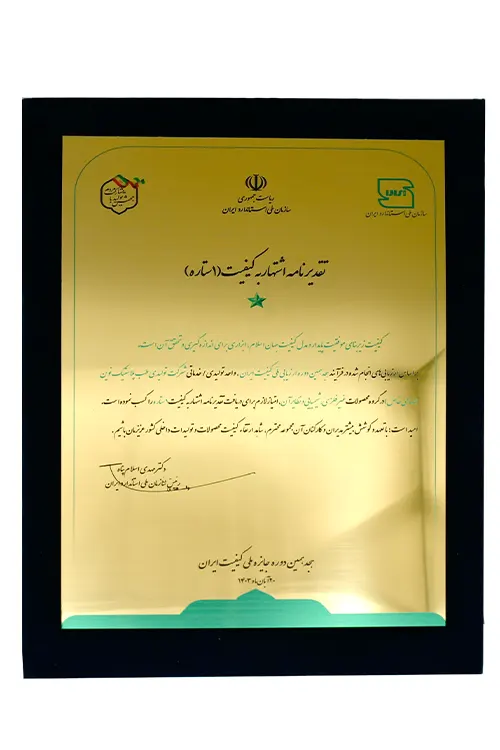 ریاست جمهوری
سازمان ملی استاندارد ایران
سازمان ملی استاندارد ایران
تقدیرنامه اشتهار به کیفیت (۱ ستاره)
کیفیت زیربنای موفقیت پایدار و مدل کیفیت جهان اسلام، ابزاری برای اندازه گیری و تحقق آن است.
بر اساس ارزیابی‌های انجام شده در فرآیند هجدهمین دوره ارزیابی ملی کیفیت ایران، واحد تولیدی / خدماتی شرکت تولیدی طب پلاستیک نوین
در گروه محصولات غیرفلزی، شیمیایی و نظایر آن، امتیاز لازم برای دریافت تقدیرنامه اشتهار به کیفیت ۱ ستاره را کسب نموده است.
امید است: با تعهد و کوشش بیشتر مدیران و کارکنان آن مجموعه محترم، شاهد ارتقاء کیفیت محصولات و تولیدات داخلی کشور عزیزمان باشیم.
دکتر مهدی اسلام پناه
رئیس سازمان ملی استاندارد ایران
هجدهمین دوره جایزه ملی کیفیت ایران
۲۰ آبان ماه ۱۴۰۳